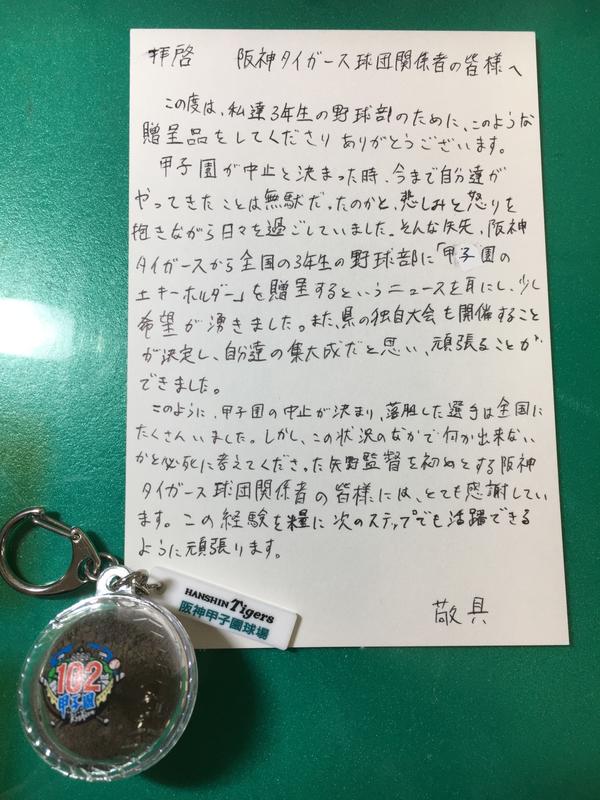 拝啓　阪神タイガース球団関係者の皆様へ
この度は、私達3年生の野球部のために、このような
贈呈品をしてくださりありがとうございます。
甲子園が中止と決まった時、今まで自分達が
やってきたことは無駄だったのかと、悲しみと怒りを
抱きながら日々を過ごしていました。そんな矢先、阪神
タイガースから全国の3年生の野球部に「甲子園の
土キーホルダー」を贈呈するというニュースを耳にし、少し
希望が湧きました。また、県の独自大会も開催すること
が決定し、自分達の集大成だと思い、頑張ることが
できました。
このように、甲子園の中止が決まり、落胆した選手は全国に
たくさんいました。しかし、この状況のなかで何か出来ない
かと必死に考えてくださった矢野監督を初めとする阪神
タイガース球団関係者の皆様には、とても感謝してい
ます。この経験を糧に次のステップでも活躍できる
ように頑張ります。
敬具
HANSHIN Tigers
阪神甲子園球場
102
甲子園